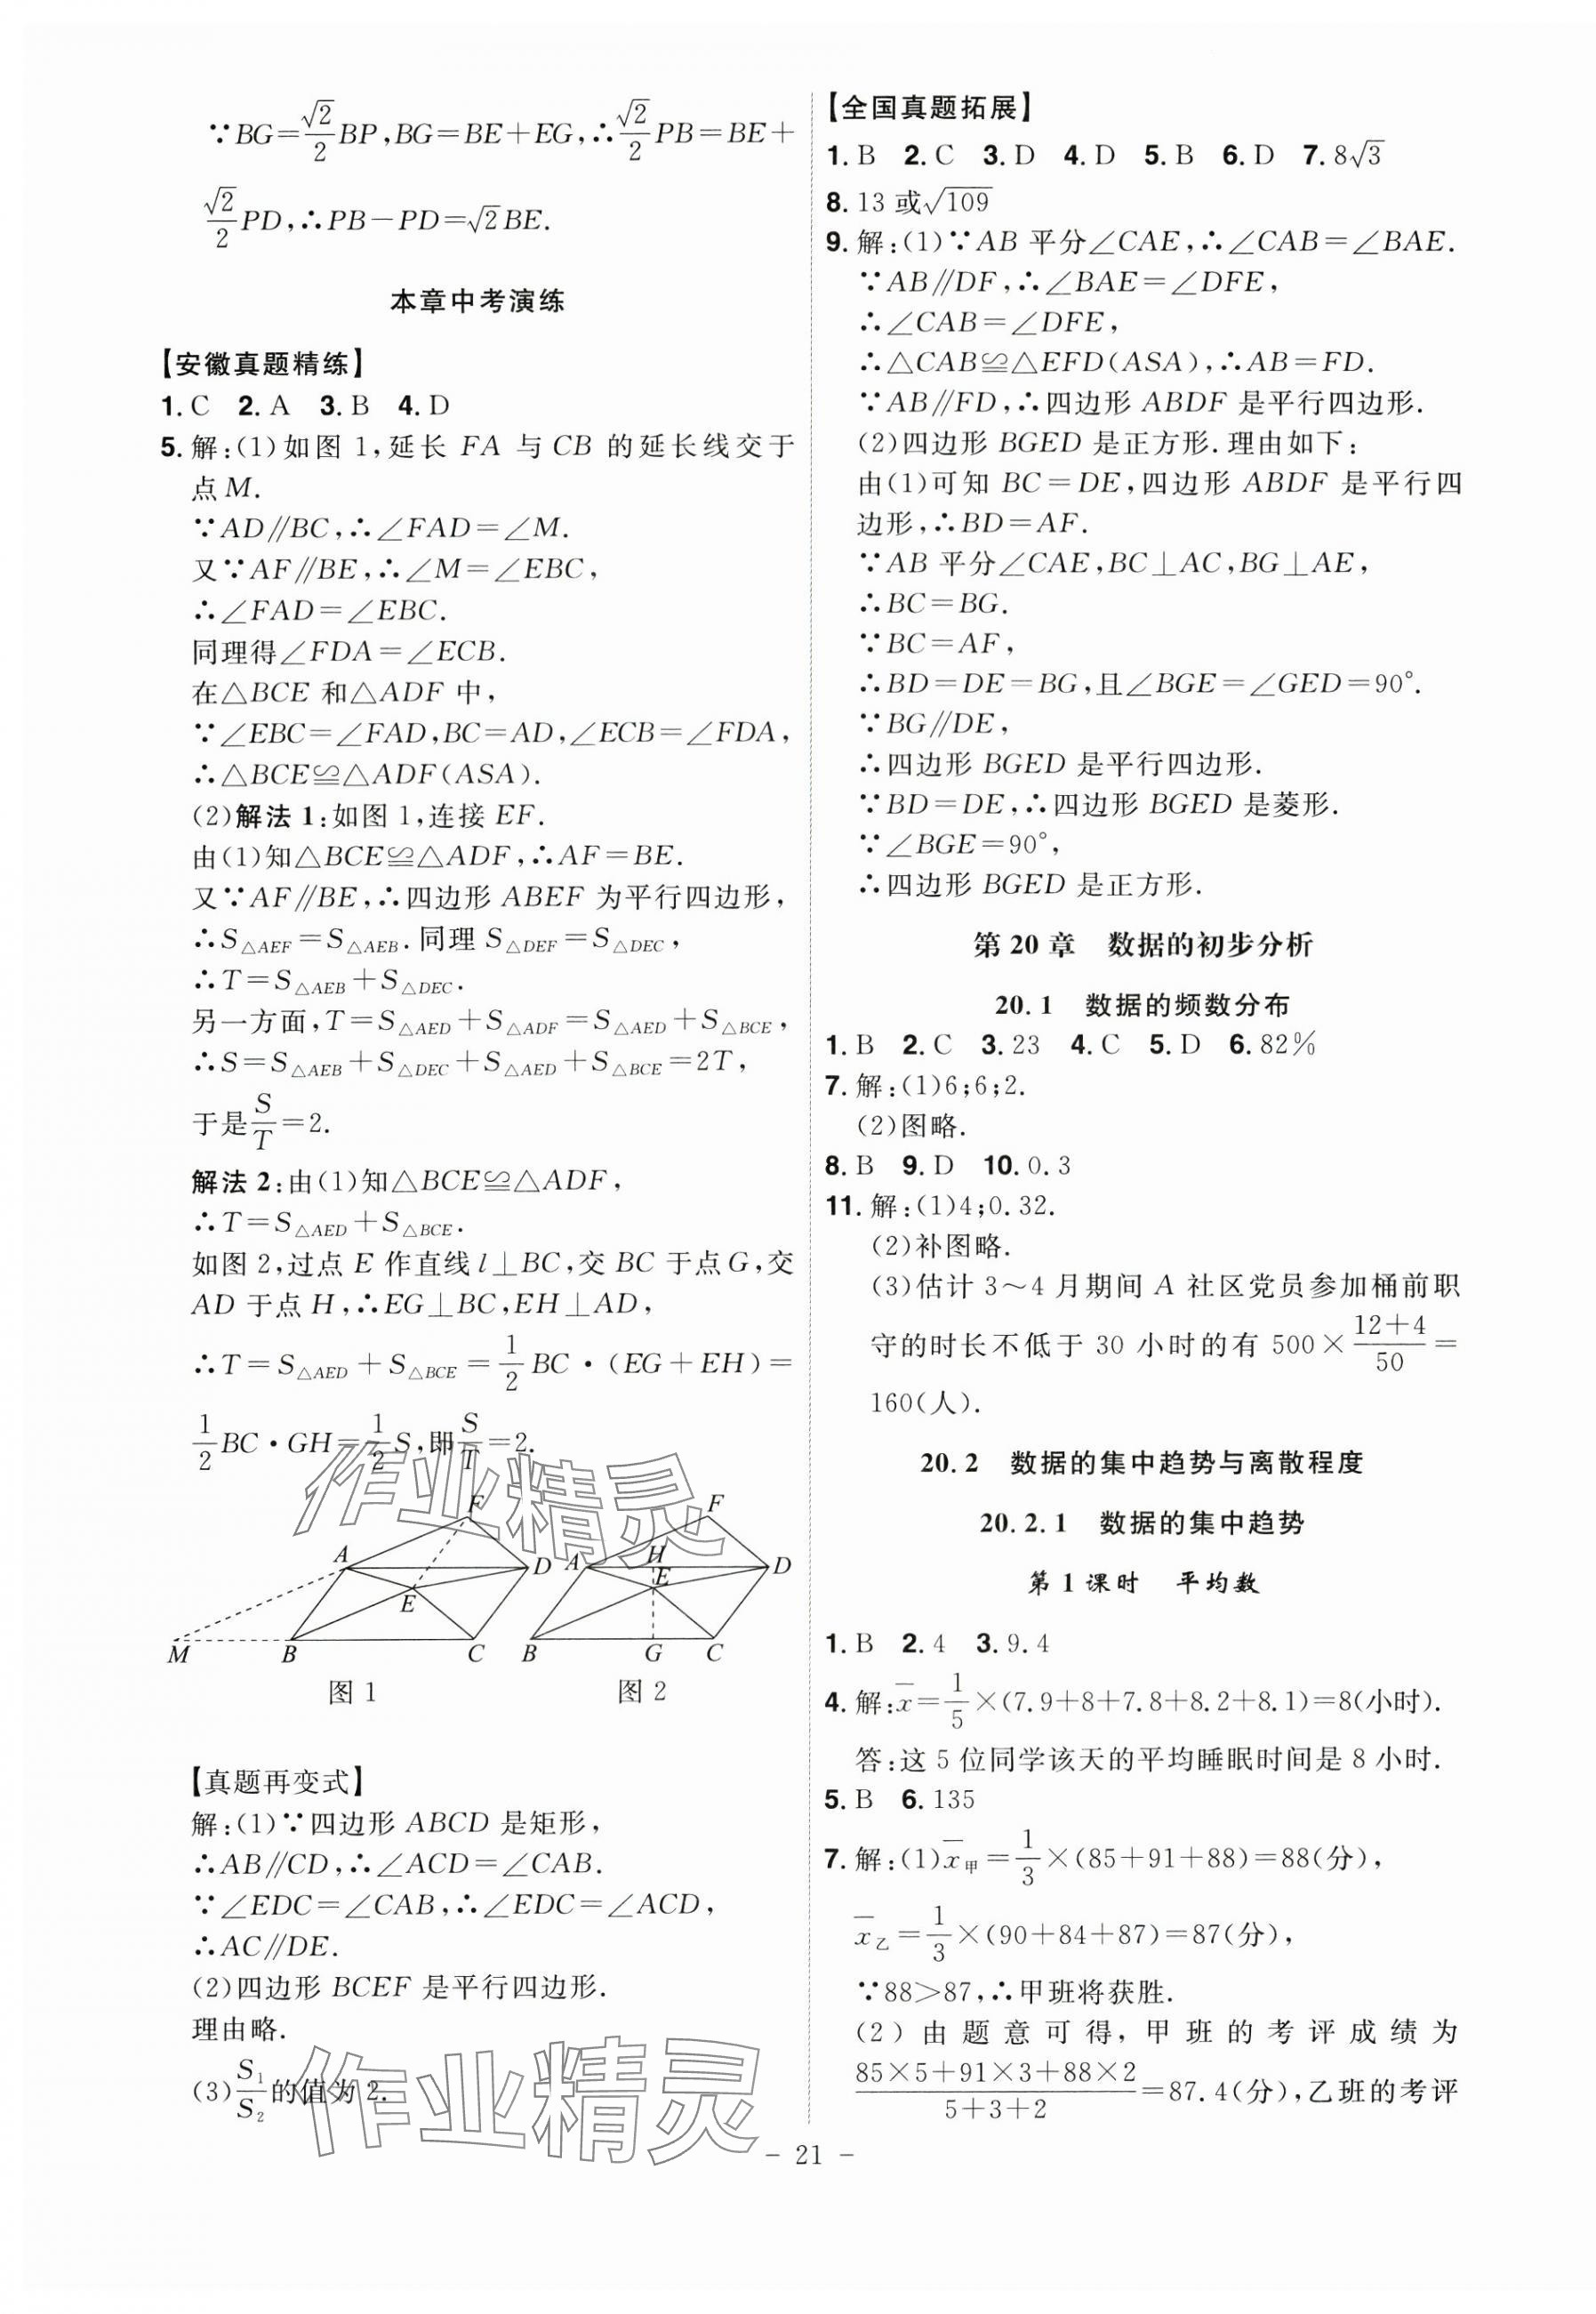 ∵BG=√2/2BP,BG=BE+EG,∴√2/2PB=BE+
√2/2PD,∴PB-PD=√2BE.
本章中考演练
【安徽真题精练】
1.C 2.A 3.B 4.D
5.解:(1)如图1,延长FA与CB的延长线交于
点M.
∵AD∥BC,∴∠FAD=∠M.
又∵AF∥BE,∴∠M=∠EBC,
∴∠FAD=∠EBC.
同理得∠FDA=∠ECB.
在△BCE和△ADF中,
∵∠EBC=∠FAD,BC=AD,∠ECB=∠FDA,
∴△BCE≌△ADF(ASA).
(2)解法1:如图1,连接EF.
由(1)知△BCE≌△ADF,∴AF=BE.
又∵AF∥BE,∴四边形ABEF为平行四边形,
∴S△AEF=S△AEB.同理S△DEF=S△DEC,
∴T=S△AEB+S△DEC.
另一方面,T=S△AED+S△ADF=S△AED+S△BCE,
∴S=S△AEB+S△DEC+S△AED+S△BCE=2T,
于是S/T=2.
解法2:由(1)知△BCE≌△ADF,
∴T=S△AED+S△BCE.
如图2,过点E作直线l⊥BC,交BC于点G,交
AD于点H,∴EG⊥BC,EH⊥AD,
∴T=S△AED+S△BCE=1/2BC·(EG+EH)=
1/2BC·GH=1/2S,即S/T=2.
作业精灵
F
A
D
E
M
B
C
图1
F
A
H
D
E
B
G
C
图2
【真题再变式】
解:(1)∵四边形ABCD是矩形,
∴AB∥CD,∴∠ACD=∠CAB.
∵∠EDC=∠CAB,∴∠EDC=∠ACD,
∴AC∥DE.
(2)四边形BCEF是平行四边形.
理由略.
(3)S₁/S₂的值为2.
作业精灵
【全国真题拓展】
1.B 2.C 3.D 4.D 5.B 6.D 7.8√3
8.13或√109
9.解:(1)∵AB平分∠CAE,∴∠CAB=∠BAE.
∵AB∥DF,∴∠BAE=∠DFE,
∴∠CAB=∠DFE,
∴△CAB≌△EFD(ASA),∴AB=FD.
∵AB∥FD,∴四边形ABDF是平行四边形.
(2)四边形BGED是正方形.理由如下:
由(1)可知BC=DE,四边形ABDF是平行四
边形,∴BD=AF.
∵AB平分∠CAE,BC⊥AC,BG⊥AE,
∴BC=BG.
∵BC=AF,
∴BD=DE=BG,且∠BGE=∠GED=90°.
∵BG∥DE,
∴四边形BGED是平行四边形.
∵BD=DE,∴四边形BGED是菱形.
∵∠BGE=90°,
∴四边形BGED是正方形.
第20章 数据的初步分析
20.1 数据的频数分布
1.B 2.C 3.23 4.C 5.D 6.82%
7.解:(1)6;6;2.
(2)图略.
8.B 9.D 10.0.3
11.解:(1)4;0.32.
(2)补图略.
(3)估计3~4月期间A社区党员参加桶前职
守的时长不低于30小时的有500×(12+4)/50=
160(人).
20.2 数据的集中趋势与离散程度
20.2.1 数据的集中趋势
第1课时 平均数
1.B 2.4 3.9.4
4.解:x̄=1/5×(7.9+8+7.8+8.2+8.1)=8(小时).
答:这5位同学该天的平均睡眠时间是8小时.
5.B 6.135
7.解:(1)x̄甲=1/3×(85+91+88)=88(分),
x̄乙=1/3×(90+84+87)=87(分),
∵88>87,∴甲班将获胜.
(2)由题意可得,甲班的考评成绩为
(85×5+91×3+88×2)/(5+3+2)=87.4(分),乙班的考评
- 21 -